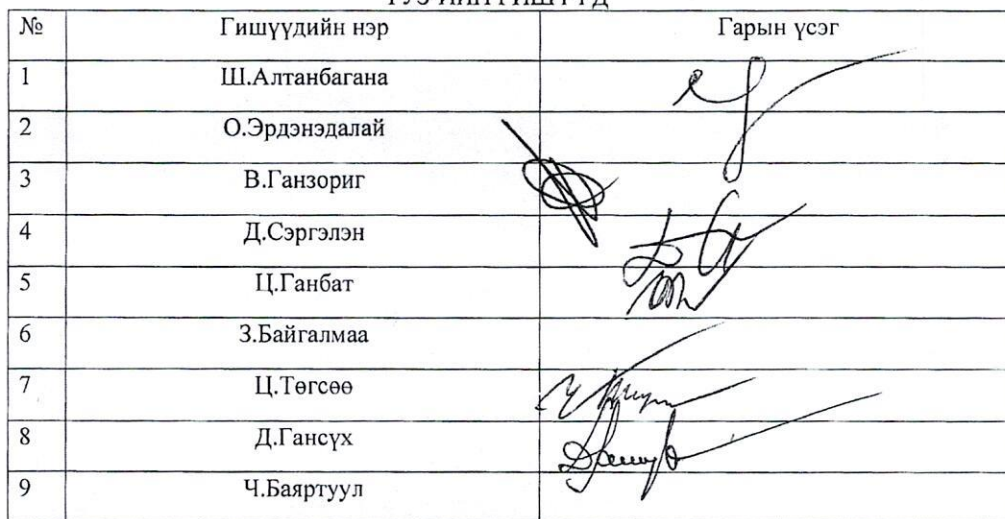 № Гишүүдийн нэр Гарын үсэг
1 Ш.Алтанбагана
2 О.Эрдэнэдалай
3 В.Ганзориг
4 Д.Сэргэлэн
5 Ц.Ганбат
6 З.Байгалмаа
7 Ц.Төгсөө
8 Д.Гансүх
9 Ч.Баяртуул